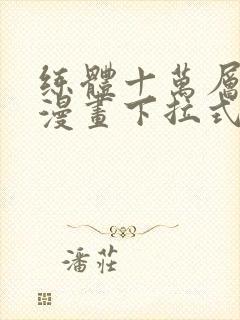 练體十萬層
漫畫下拉式
潘莊